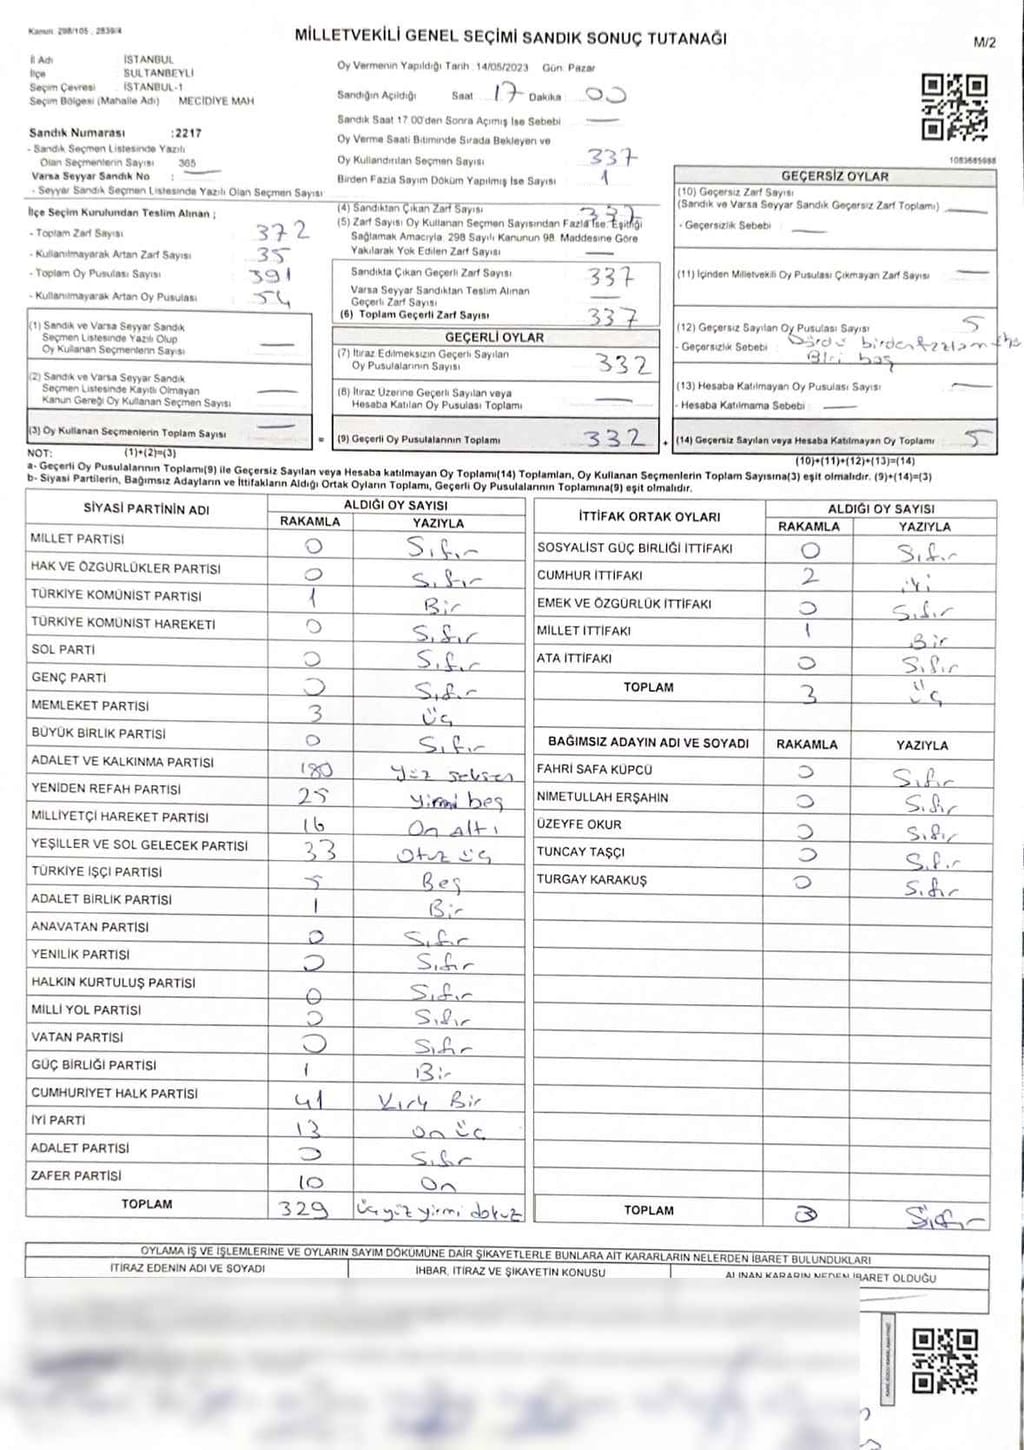 Kanun: 298/105 , 2839/4
MİLLETVEKİLİ GENEL SEÇİMİ SANDIK SONUÇ TUTANAĞI
M/2
İl Adı İSTANBUL
İlçe SULTANBEYLİ
Seçim Çevresi : İSTANBUL-1
Seçim Bölgesi (Mahalle Adı) MECİDİYE MAH
Sandık Numarası :2217
- Sandık Seçmen Listesinde Yazılı
Olan Seçmenlerin Sayısı 365
Varsa Seyyar Sandık No :
- Seyyar Sandık Seçmen Listesinde Yazılı Olan Seçmen Sayısı
Oy Vermenin Yapıldığı Tarih :14/05/2023 Gün: Pazar
Sandığın Açıldığı Saat 17 Dakika 00
Sandık Saat 17:00'den Sonra Açımış İse Sebebi
Oy Verme Saati Bitiminde Sırada Bekleyen ve
Oy Kullandırılan Seçmen Sayısı 337
Birden Fazla Sayım Döküm Yapılmış İse Sayısı 1
1083685988
İlçe Seçim Kurulundan Teslim Alınan ;
- Toplam Zarf Sayısı 372
- Kullanılmayarak Artan Zarf Sayısı 35
- Toplam Oy Pusulası Sayısı 391
- Kullanılmayarak Artan Oy Pusulası 54
(1) Sandık ve Varsa Seyyar Sandık
Seçmen Listesinde Yazılı Olup
Oy Kullanan Seçmenlerin Sayısı
(2) Sandık ve Varsa Seyyar Sandık
Seçmen Listesinde Kayıtlı Olmayan
Kanun Gereği Oy Kullanan Seçmen Sayısı
(3) Oy Kullanan Seçmenlerin Toplam Sayısı =
(4) Sandıktan Çıkan Zarf Sayısı 337
(5) Zarf Sayısı Oy Kullanan Seçmen Sayısından Fazla İse, Eşitliği
Sağlamak Amacıyla, 298 Sayılı Kanunun 98. Maddesine Göre
Yakılarak Yok Edilen Zarf Sayısı
Sandıkta Çıkan Geçerli Zarf Sayısı 337
Varsa Seyyar Sandıktan Teslim Alınan
Geçerli Zarf Sayısı
(6) Toplam Geçerli Zarf Sayısı 337
GEÇERLİ OYLAR
(7) İtiraz Edilmeksizin Geçerli Sayılan
Oy Pusulalarının Sayısı 332
(8) İtiraz Üzerine Geçerli Sayılan veya
Hesaba Katılan Oy Pusulası Toplamı
(9) Geçerli Oy Pusulalarının Toplamı 332 +
GEÇERSİZ OYLAR
(10) Geçersiz Zarf Sayısı
(Sandık ve Varsa Seyyar Sandık Geçersiz Zarf Toplamı)
- Geçersizlik Sebebi :
(11) İçinden Milletvekili Oy Pusulası Çıkmayan Zarf Sayısı
(12) Geçersiz Sayılan Oy Pusulası Sayısı 5
- Geçersizlik Sebebi : Dördü birden fazla
Biri boş
(13) Hesaba Katılmayan Oy Pusulası Sayısı
- Hesaba Katılmama Sebebi :
(14) Geçersiz Sayılan veya Hesaba Katılmayan Oy Toplamı 5
NOT: (1)+(2)=(3)
(10)+(11)+(12)+(13)=(14)
a- Geçerli Oy Pusulalarının Toplamı(9) ile Geçersiz Sayılan veya Hesaba katılmayan Oy Toplamı(14) Toplamları, Oy Kullanan Seçmenlerin Toplam Sayısına(3) eşit olmalıdır. (9)+(14)=(3)
b- Siyasi Partilerin, Bağımsız Adayların ve İttifakların Aldığı Ortak Oyların Toplamı, Geçerli Oy Pusulalarının Toplamına(9) eşit olmalıdır.
SİYASİ PARTİNİN ADI ALDIĞI OY SAYISI
RAKAMLA YAZIYLA
MİLLET PARTİSİ 0 Sıfır
HAK VE ÖZGÜRLÜKLER PARTİSİ 0 Sıfır
TÜRKİYE KOMÜNİST PARTİSİ 1 Bir
TÜRKİYE KOMÜNİST HAREKETİ 0 Sıfır
SOL PARTİ 0 Sıfır
GENÇ PARTİ 0 Sıfır
MEMLEKET PARTİSİ 3 üç
BÜYÜK BİRLİK PARTİSİ 0 Sıfır
ADALET VE KALKINMA PARTİSİ 180 yüz seksen
YENİDEN REFAH PARTİSİ 25 yirmi beş
MİLLİYETÇİ HAREKET PARTİSİ 16 On altı
YEŞİLLER VE SOL GELECEK PARTİSİ 33 Otuz üç
TÜRKİYE İŞÇİ PARTİSİ 5 Beş
ADALET BİRLİK PARTİSİ 1 Bir
ANAVATAN PARTİSİ 0 Sıfır
YENİLİK PARTİSİ 0 Sıfır
HALKIN KURTULUŞ PARTİSİ 0 Sıfır
MİLLİ YOL PARTİSİ 0 Sıfır
VATAN PARTİSİ 0 Sıfır
GÜÇ BİRLİĞİ PARTİSİ 1 Bir
CUMHURİYET HALK PARTİSİ 41 Kırk Bir
İYİ PARTİ 13 on üç
ADALET PARTİSİ 0 Sıfır
ZAFER PARTİSİ 10 On
TOPLAM 329 üçyüz yirmi dokuz
İTTİFAK ORTAK OYLARI ALDIĞI OY SAYISI
RAKAMLA YAZIYLA
SOSYALİST GÜÇ BİRLİĞİ İTTİFAKI 0 Sıfır
CUMHUR İTTİFAKI 2 iki
EMEK VE ÖZGÜRLÜK İTTİFAKI 0 Sıfır
MİLLET İTTİFAKI 1 Bir
ATA İTTİFAKI 0 Sıfır
TOPLAM 3 üç
BAĞIMSIZ ADAYIN ADI VE SOYADI RAKAMLA YAZIYLA
FAHRİ SAFA KÜPCÜ 0 Sıfır
NİMETULLAH ERŞAHİN 0 Sıfır
ÜZEYFE OKUR 0 Sıfır
TUNCAY TAŞÇI 0 Sıfır
TURGAY KARAKUŞ 0 Sıfır
TOPLAM Sıfır
OYLAMA İŞ VE İŞLEMLERİNE VE OYLARIN SAYIM DÖKÜMÜNE DAİR ŞİKAYETLERLE BUNLARA AİT KARARLARIN NELERDEN İBARET BULUNDUKLARI
İTİRAZ EDENİN ADI VE SOYADI İHBAR, İTİRAZ VE ŞİKAYETİN KONUSU ALINAN KARARIN NEDEN İBARET OLDUĞU